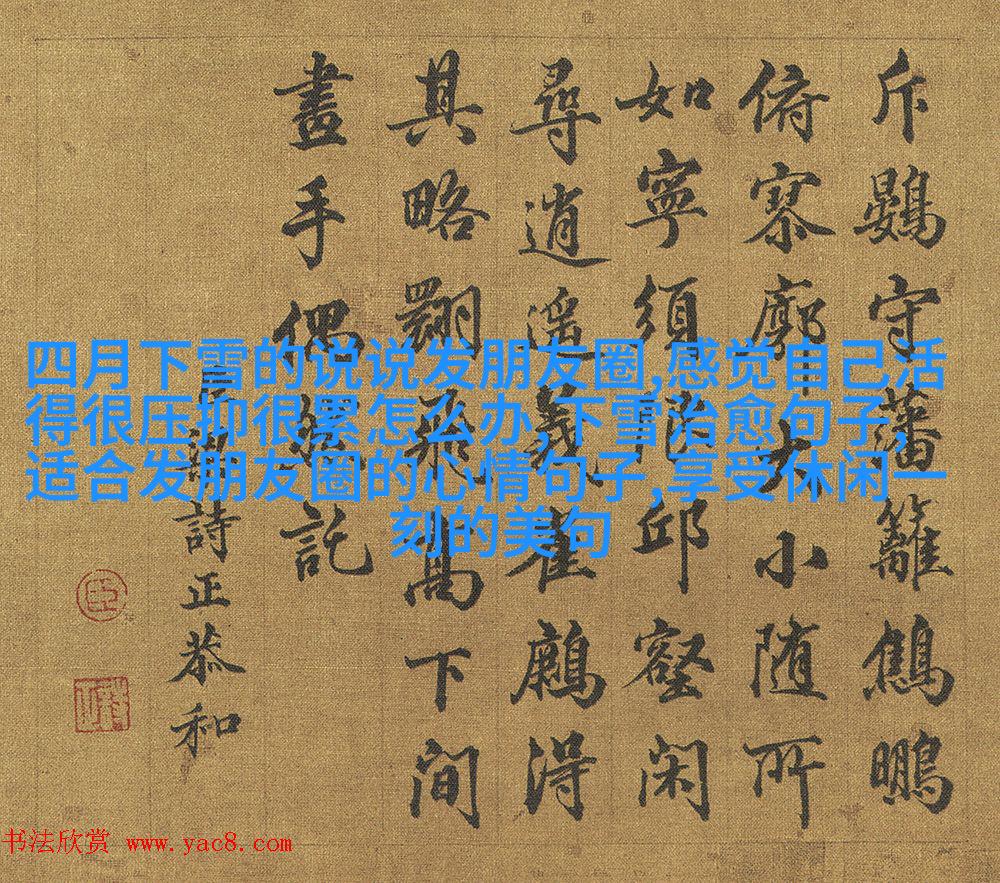 斥鷃守藩籬鷦鵬
俯寥廓大小随所
如寧須限邱壑闲
尋逍遥義得
其略翱飛高下間
畫手偶然託
臣梁詩正恭和
四月下雪的说说发朋友圈,感觉自己活
得很压抑很累怎么办,下雪治愈句子,
适合发朋友圈的心情句子,享受休闲一
刻的美句
书法欣赏 www.yac8.com